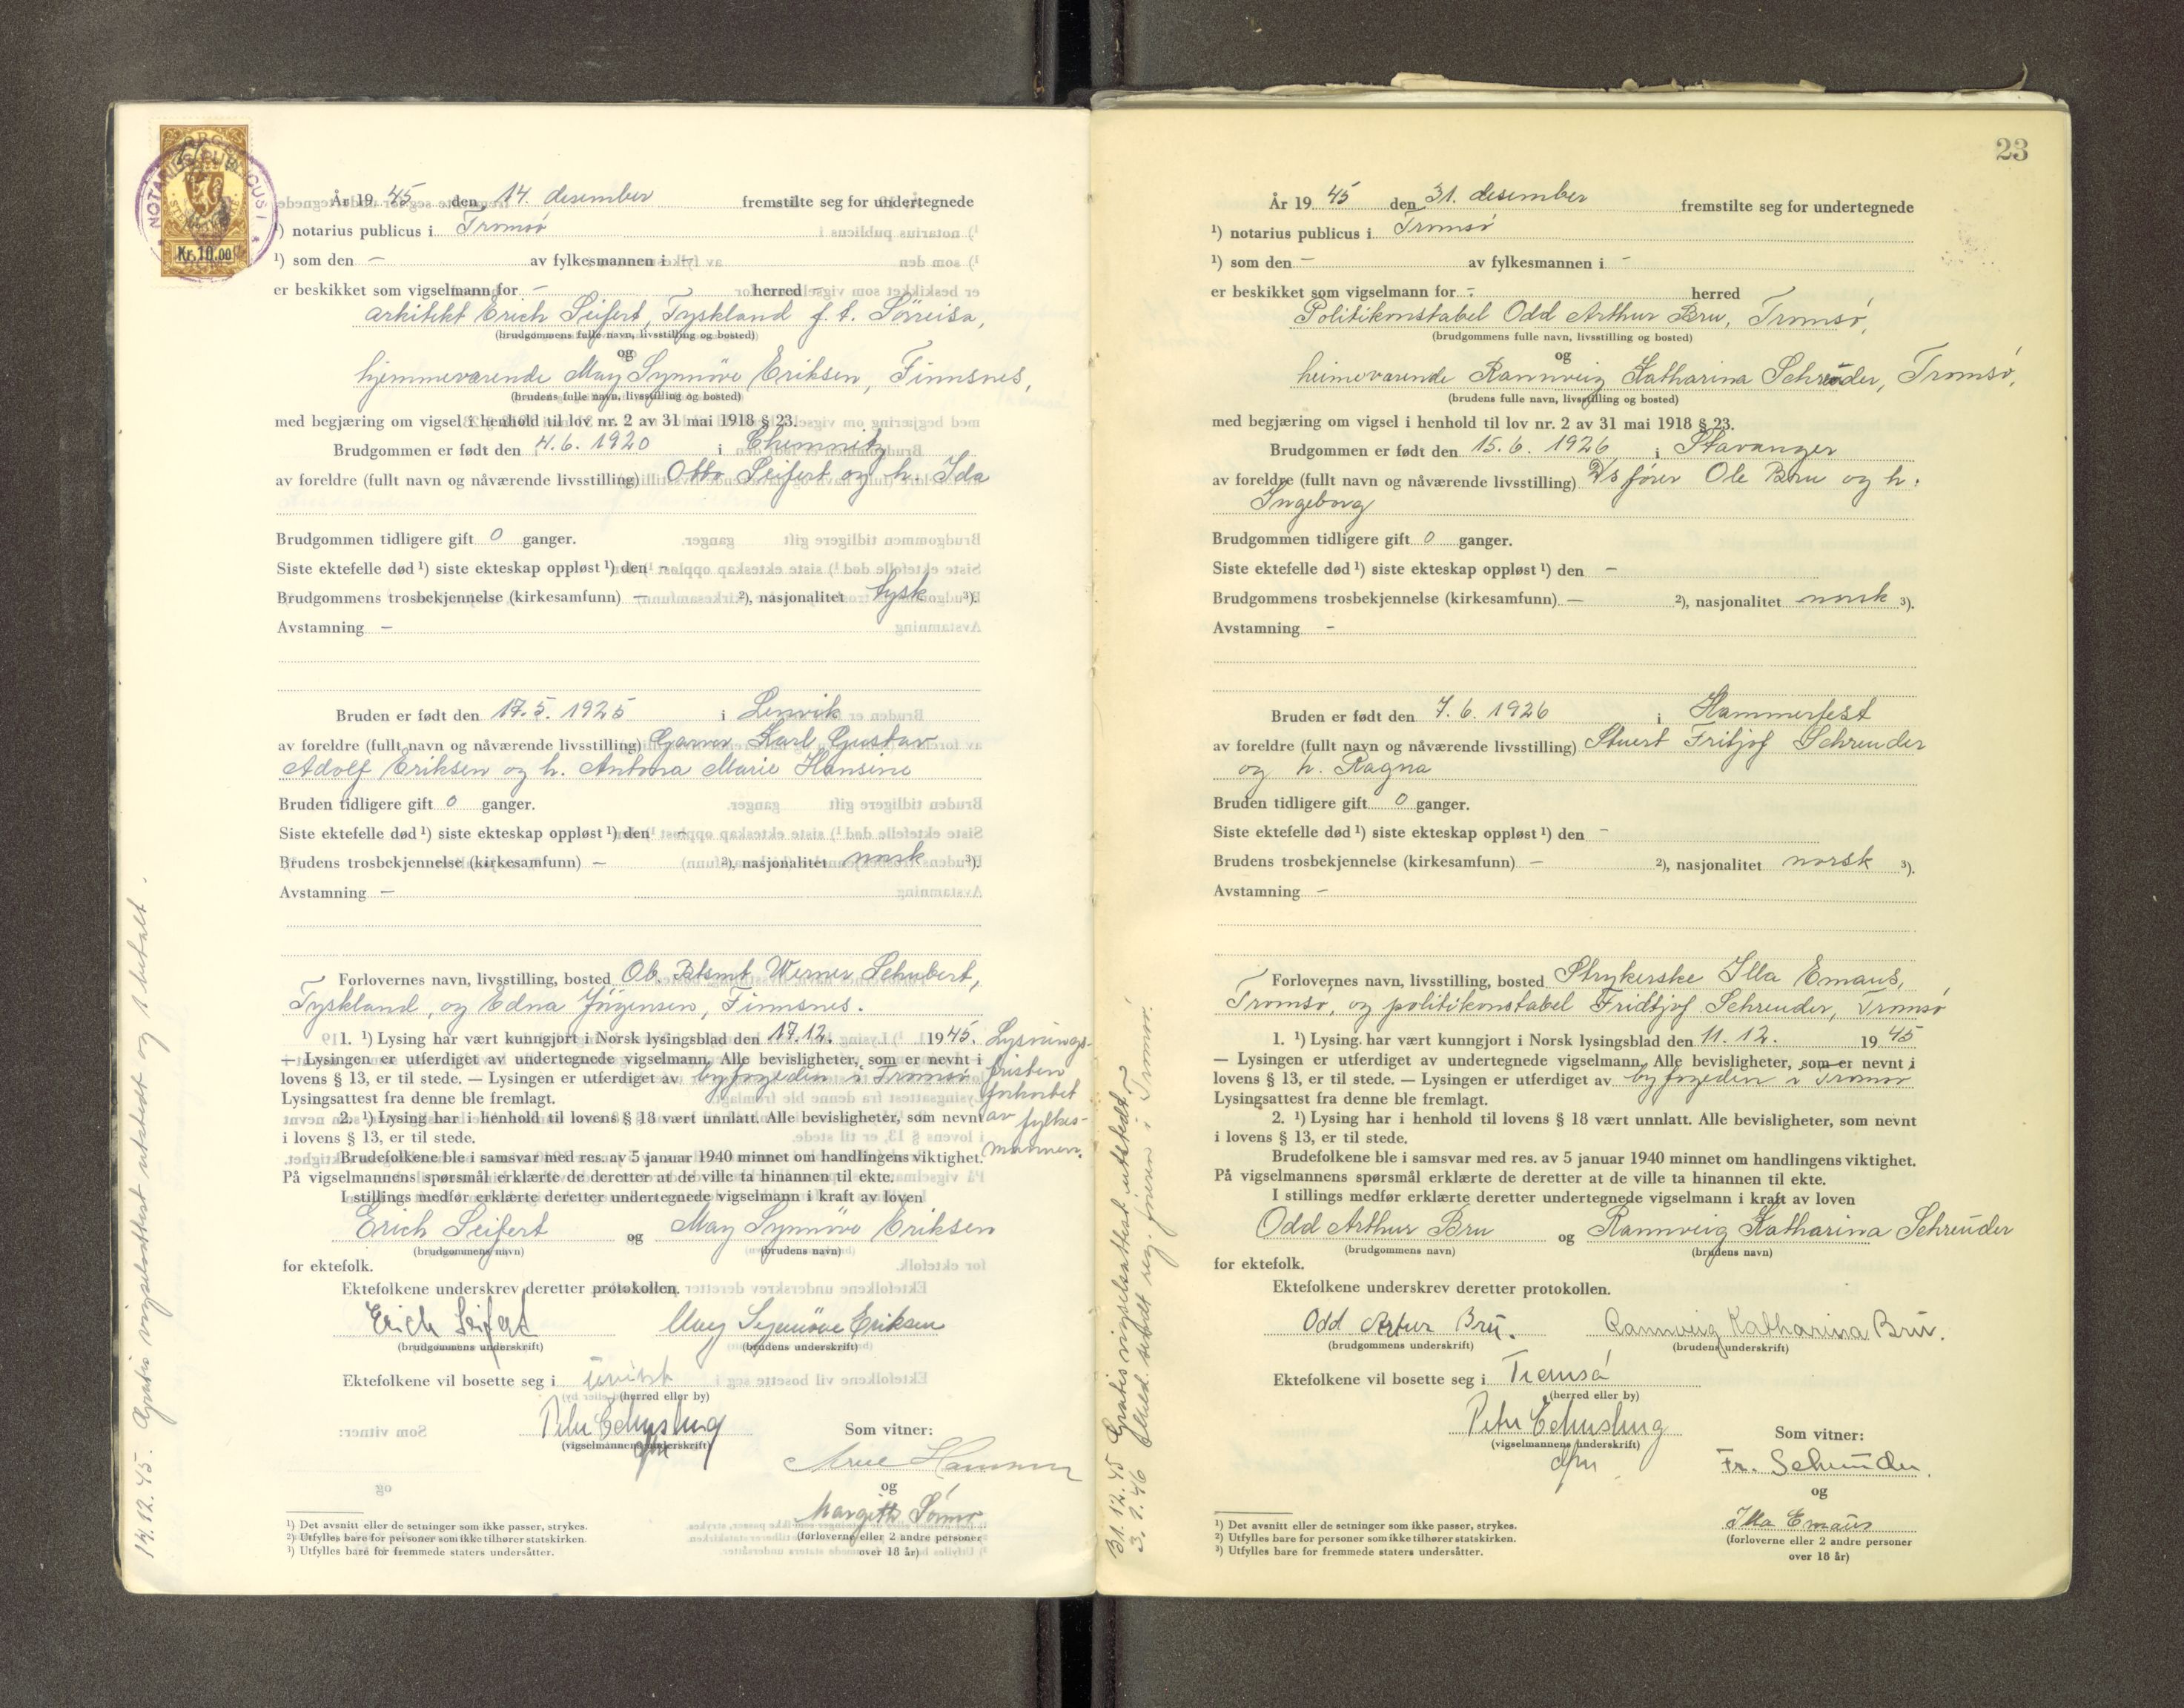 NOTARIUS PUBLICUS I
Kr. 10.00
År 19 45 den 14. desember fremstilte seg for undertegnede
¹) notarius publicus i Tromsø
¹) som den – av fylkesmannen i –
er beskikket som vigselmann for – herred –
arkitekt Erich Seifert, Tyskland f. t. Sörreisa,
(brudgommens fulle navn, livsstilling og bosted)
og
hjemmeværende May Synnöve Eriksen, Finnsnes,
(brudens fulle navn, livsstilling og bosted)
med begjæring om vigsel i henhold til lov nr. 2 av 31 mai 1918 § 23.
Brudgommen er født den 4.6. 1920 i Chemnitz
av foreldre (fullt navn og nåværende livsstilling) Otto Seifert og h. Ida
Brudgommen tidligere gift 0 ganger.
Siste ektefelle død ¹) siste ekteskap oppløst ¹) den –
Brudgommens trosbekjennelse (kirkesamfunn) – ²), nasjonalitet tysk ³).
Avstamning –
Bruden er født den 17.5. 1925 i Lenvik
av foreldre (fullt navn og nåværende livsstilling) Garver Karl Gustav
Adolf Eriksen og h. Antona Marie Hansine
Bruden tidligere gift 0 ganger.
Siste ektefelle død ¹) siste ekteskap oppløst ¹) den –
Brudens trosbekjennelse (kirkesamfunn) – ²), nasjonalitet norsk ³).
Avstamning –
Forlovernes navn, livsstilling, bosted Ob. Btsmt Werner Schubert,
Tyskland, og Edna Jörgensen, Finnsnes.
1. ¹) Lysing har vært kunngjort i Norsk lysingsblad den 17.12. 1945.
— Lysingen er utferdiget av undertegnede vigselmann. Alle bevisligheter, som er nevnt i
lovens § 13, er til stede. — Lysingen er utferdiget av byfogeden i Tromsø
Lysingsattest fra denne ble fremlagt.
2. ¹) Lysing har i henhold til lovens § 18 vært unnlatt. Alle bevisligheter, som nevnt
i lovens § 13, er til stede.
Brudefolkene ble i samsvar med res. av 5 januar 1940 minnet om handlingens viktighet.
På vigselmannens spørsmål erklærte de deretter at de ville ta hinannen til ekte.
I stillings medfør erklærte deretter undertegnede vigselmann i kraft av loven
Erich Seifert og May Synnöve Eriksen
(brudgommens navn) (brudens navn)
for ektefolk.
Ektefolkene underskrev deretter protokollen.
Erich Seifert May Synnöve Eriksen
(brudgommens underskrift) (brudens underskrift)
Ektefolkene vil bosette seg i uvisst
(herred eller by)
(vigselmannens underskrift)
Som vitner:
Arne Hansen
og
Margith Sörmo
(forloverne eller 2 andre personer
over 18 år)
¹) Det avsnitt eller de setninger som ikke passer, strykes.
²) Utfylles bare for personer som ikke tilhører statskirken.
³) Utfylles bare for fremmede staters undersåtter.
Lysnings-
fristen
forkortet
av fylkes-
mannen.
14.12.45. Gratis vigselsattest utstedt og 1 betalt.
23
År 19 45 den 31. desember fremstilte seg for undertegnede
¹) notarius publicus i Tromsø
¹) som den – av fylkesmannen i –
er beskikket som vigselmann for – herred
Politikonstabel Odd Arthur Bru, Tromsø,
(brudgommens fulle navn, livsstilling og bosted)
og
heimeværende Rannveig Katharina Schreuder, Tromsø,
(brudens fulle navn, livsstilling og bosted)
med begjæring om vigsel i henhold til lov nr. 2 av 31 mai 1918 § 23.
Brudgommen er født den 15.6. 1926 i Stavanger
av foreldre (fullt navn og nåværende livsstilling) D/s fører Ole Bru og h.
Ingeborg
Brudgommen tidligere gift 0 ganger.
Siste ektefelle død ¹) siste ekteskap oppløst ¹) den –
Brudgommens trosbekjennelse (kirkesamfunn) – ²), nasjonalitet norsk ³).
Avstamning –
Bruden er født den 7.6. 1926 i Hammerfest
av foreldre (fullt navn og nåværende livsstilling) Stuert Fritjof Schreuder
og h. Ragna
Bruden tidligere gift 0 ganger.
Siste ektefelle død ¹) siste ekteskap oppløst ¹) den –
Brudens trosbekjennelse (kirkesamfunn) – ²), nasjonalitet norsk ³).
Avstamning –
Forlovernes navn, livsstilling, bosted Strykerske Illa Emaus,
Tromsø, og politikonstabel Fridtjof Schreuder, Tromsø
1. ¹) Lysing har vært kunngjort i Norsk lysingsblad den 11.12. 19 45
— Lysingen er utferdiget av undertegnede vigselmann. Alle bevisligheter, som er nevnt i
lovens § 13, er til stede. — Lysingen er utferdiget av byfogeden i Tromsø
Lysingsattest fra denne ble fremlagt.
2. ¹) Lysing har i henhold til lovens § 18 vært unnlatt. Alle bevisligheter, som nevnt
i lovens § 13, er til stede.
Brudefolkene ble i samsvar med res. av 5 januar 1940 minnet om handlingens viktighet.
På vigselmannens spørsmål erklærte de deretter at de ville ta hinannen til ekte.
I stillings medfør erklærte deretter undertegnede vigselmann i kraft av loven
Odd Arthur Bru og Rannveig Katharina Schreuder
(brudgommens navn) (brudens navn)
for ektefolk.
Ektefolkene underskrev deretter protokollen.
Odd Artur Bru. Rannveig Katharina Bru.
(brudgommens underskrift) (brudens underskrift)
Ektefolkene vil bosette seg i Tromsø
(herred eller by)
(vigselmannens underskrift)
Som vitner:
Fr. Schreuder.
og
Illa Emaus
(forloverne eller 2 andre personer
over 18 år)
¹) Det avsnitt eller de setninger som ikke passer, strykes.
²) Utfylles bare for personer som ikke tilhører statskirken.
³) Utfylles bare for fremmede staters undersåtter.
31.12.45 Gratis vigselsattest utstedt.
3.1.46 Meld. sendt reg.føreren i Tromsø.